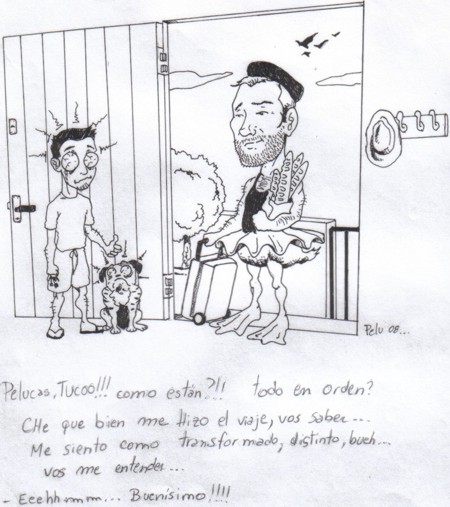 Pelu 08...
Pelucas, Tucoó!!! como están?!! todo en orden?
CHe que bien me Hizo el viaje, vos saber...
Me siento como transformado, distinto, bueh...
vos me entender...
- Eeehhmmm... Buenísimo!!!!